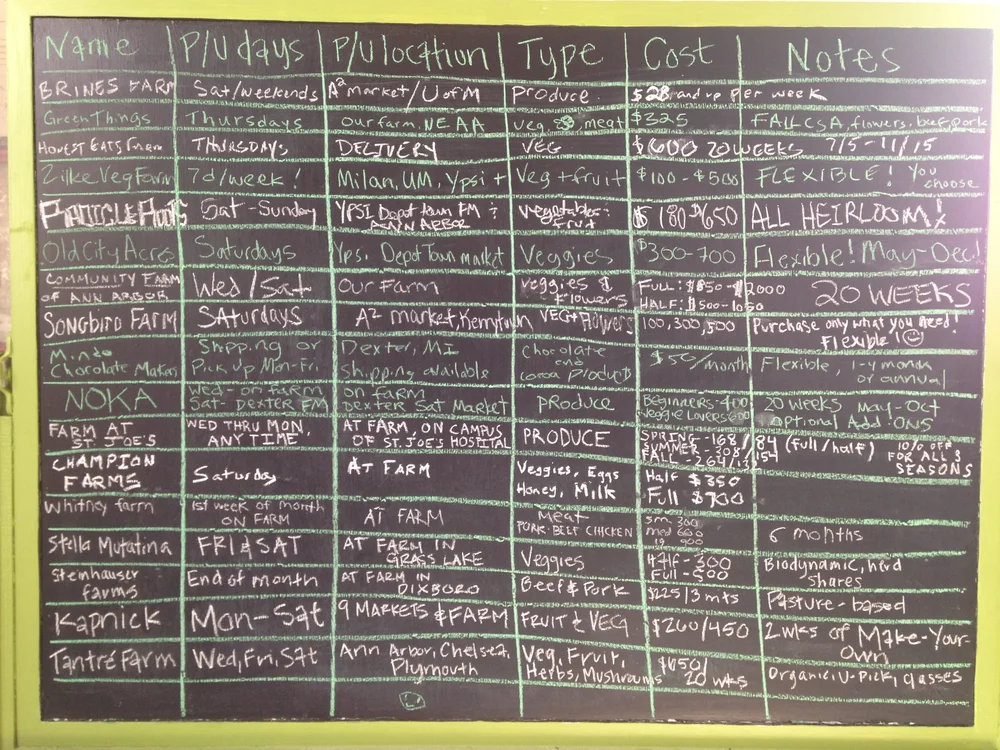 Name P/U days P/U location Type Cost Notes
BRINES FARM Sat/weekends A² market/U of M Produce $28 and up per week
GreenThings Thursdays our farm, NE AA veg meat $325 FALL CSA, flowers, beef, pork
HONEST EATS Farm THURSDAYS DELIVERY VEG $600 20 WEEKS 7/5 - 11/15
Zilke Veg Farm 7d/week! Milan, UM, Ypsi + Veg + fruit $100 - $500 FLEXIBLE! You
choose
Sat - Sunday YPSI Depot town FM
ANN ARBOR
Vegetables
Fruit
$180 $650 ALL HEIRLOOM!
Old City Acres Saturdays Ypsi Depot town market Veggies $300-700 Flexible! May-Dec!
COMMUNITY FARM
OF ANN ARBOR
Wed/Sat our Farm veggies &
flowers
FULL: $850 - $2000
HALF: $500 - 1050
20 WEEKS
SONGBIRD FARM SAturdays A² market Kerrytown VEG + Flowers 100, 300, 500 Purchase only what you need!
Flexible!
Mindo
Chocolate Makers
Shipping or
Pick up Mon-Fri.
Dexter, MI
Shipping available
chocolate
and
cocoa Products
$50/month Flexible, 1-4 month
or annual
NOKA Wed - on farm
Sat - Dexter FM
on farm
Dexter Sat Market
PRODUCE Beginners - 400
Veggie Lovers
20 weeks May-Oct
optional Add-ONS
FARM AT
ST. JOE'S
WED THRU MON
ANY TIME
AT FARM, ON CAMPUS
OF ST. JOE'S HOSPITAL
PRODUCE SPRING - 168/84
SUMMER - 308/154
FALL
(full/half) 10% OFF
FOR ALL 3
SEASONS
CHAMPION
FARMS
Saturday AT FARM Veggies, Eggs
Honey, Milk
Half $350
Full $700
Whitney farm 1st week of month
ON FARM
AT FARM Meat
PORK-BEEF CHICKEN
sm. 300
med 600
lg 900
6 months
Stella Mututina FRI & SAT AT FARM IN
GRASS LAKE
Veggies Half - 300
Full - 500
Biodynamic, herd
shares
Steinhauser
farms
End of month AT FARM IN
DIXBORO
Beef & Pork $225/3 mts Pasture - based
Kapnick Mon-Sat 9 MARKETS & FARM FRUIT & VEG $260/450 2 wks of Make-Your-
Own
Tantré Farm Wed, Fri, Sat Ann Arbor, Chelsea,
Plymouth
Veg, Fruit,
Herbs, Mushrooms
$650/
20 wks
Organic, U-Pick, classes